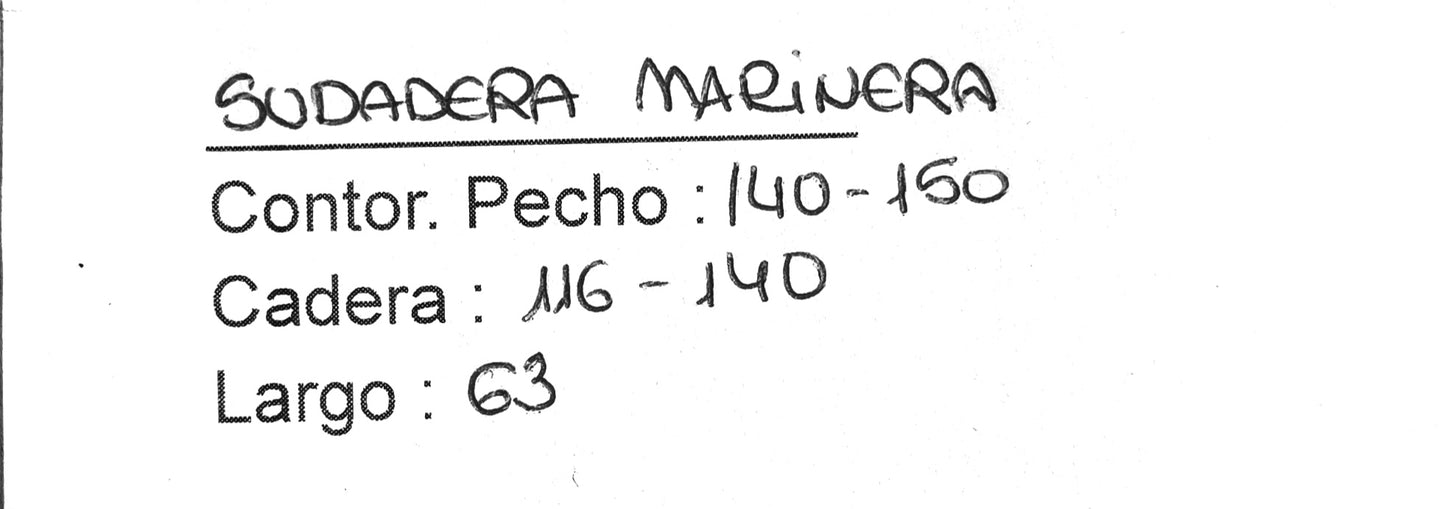 SUDADERA MARiNERA
Contor. Pecho : 140 - 150
Cadera : 116 - 140
Largo : 63